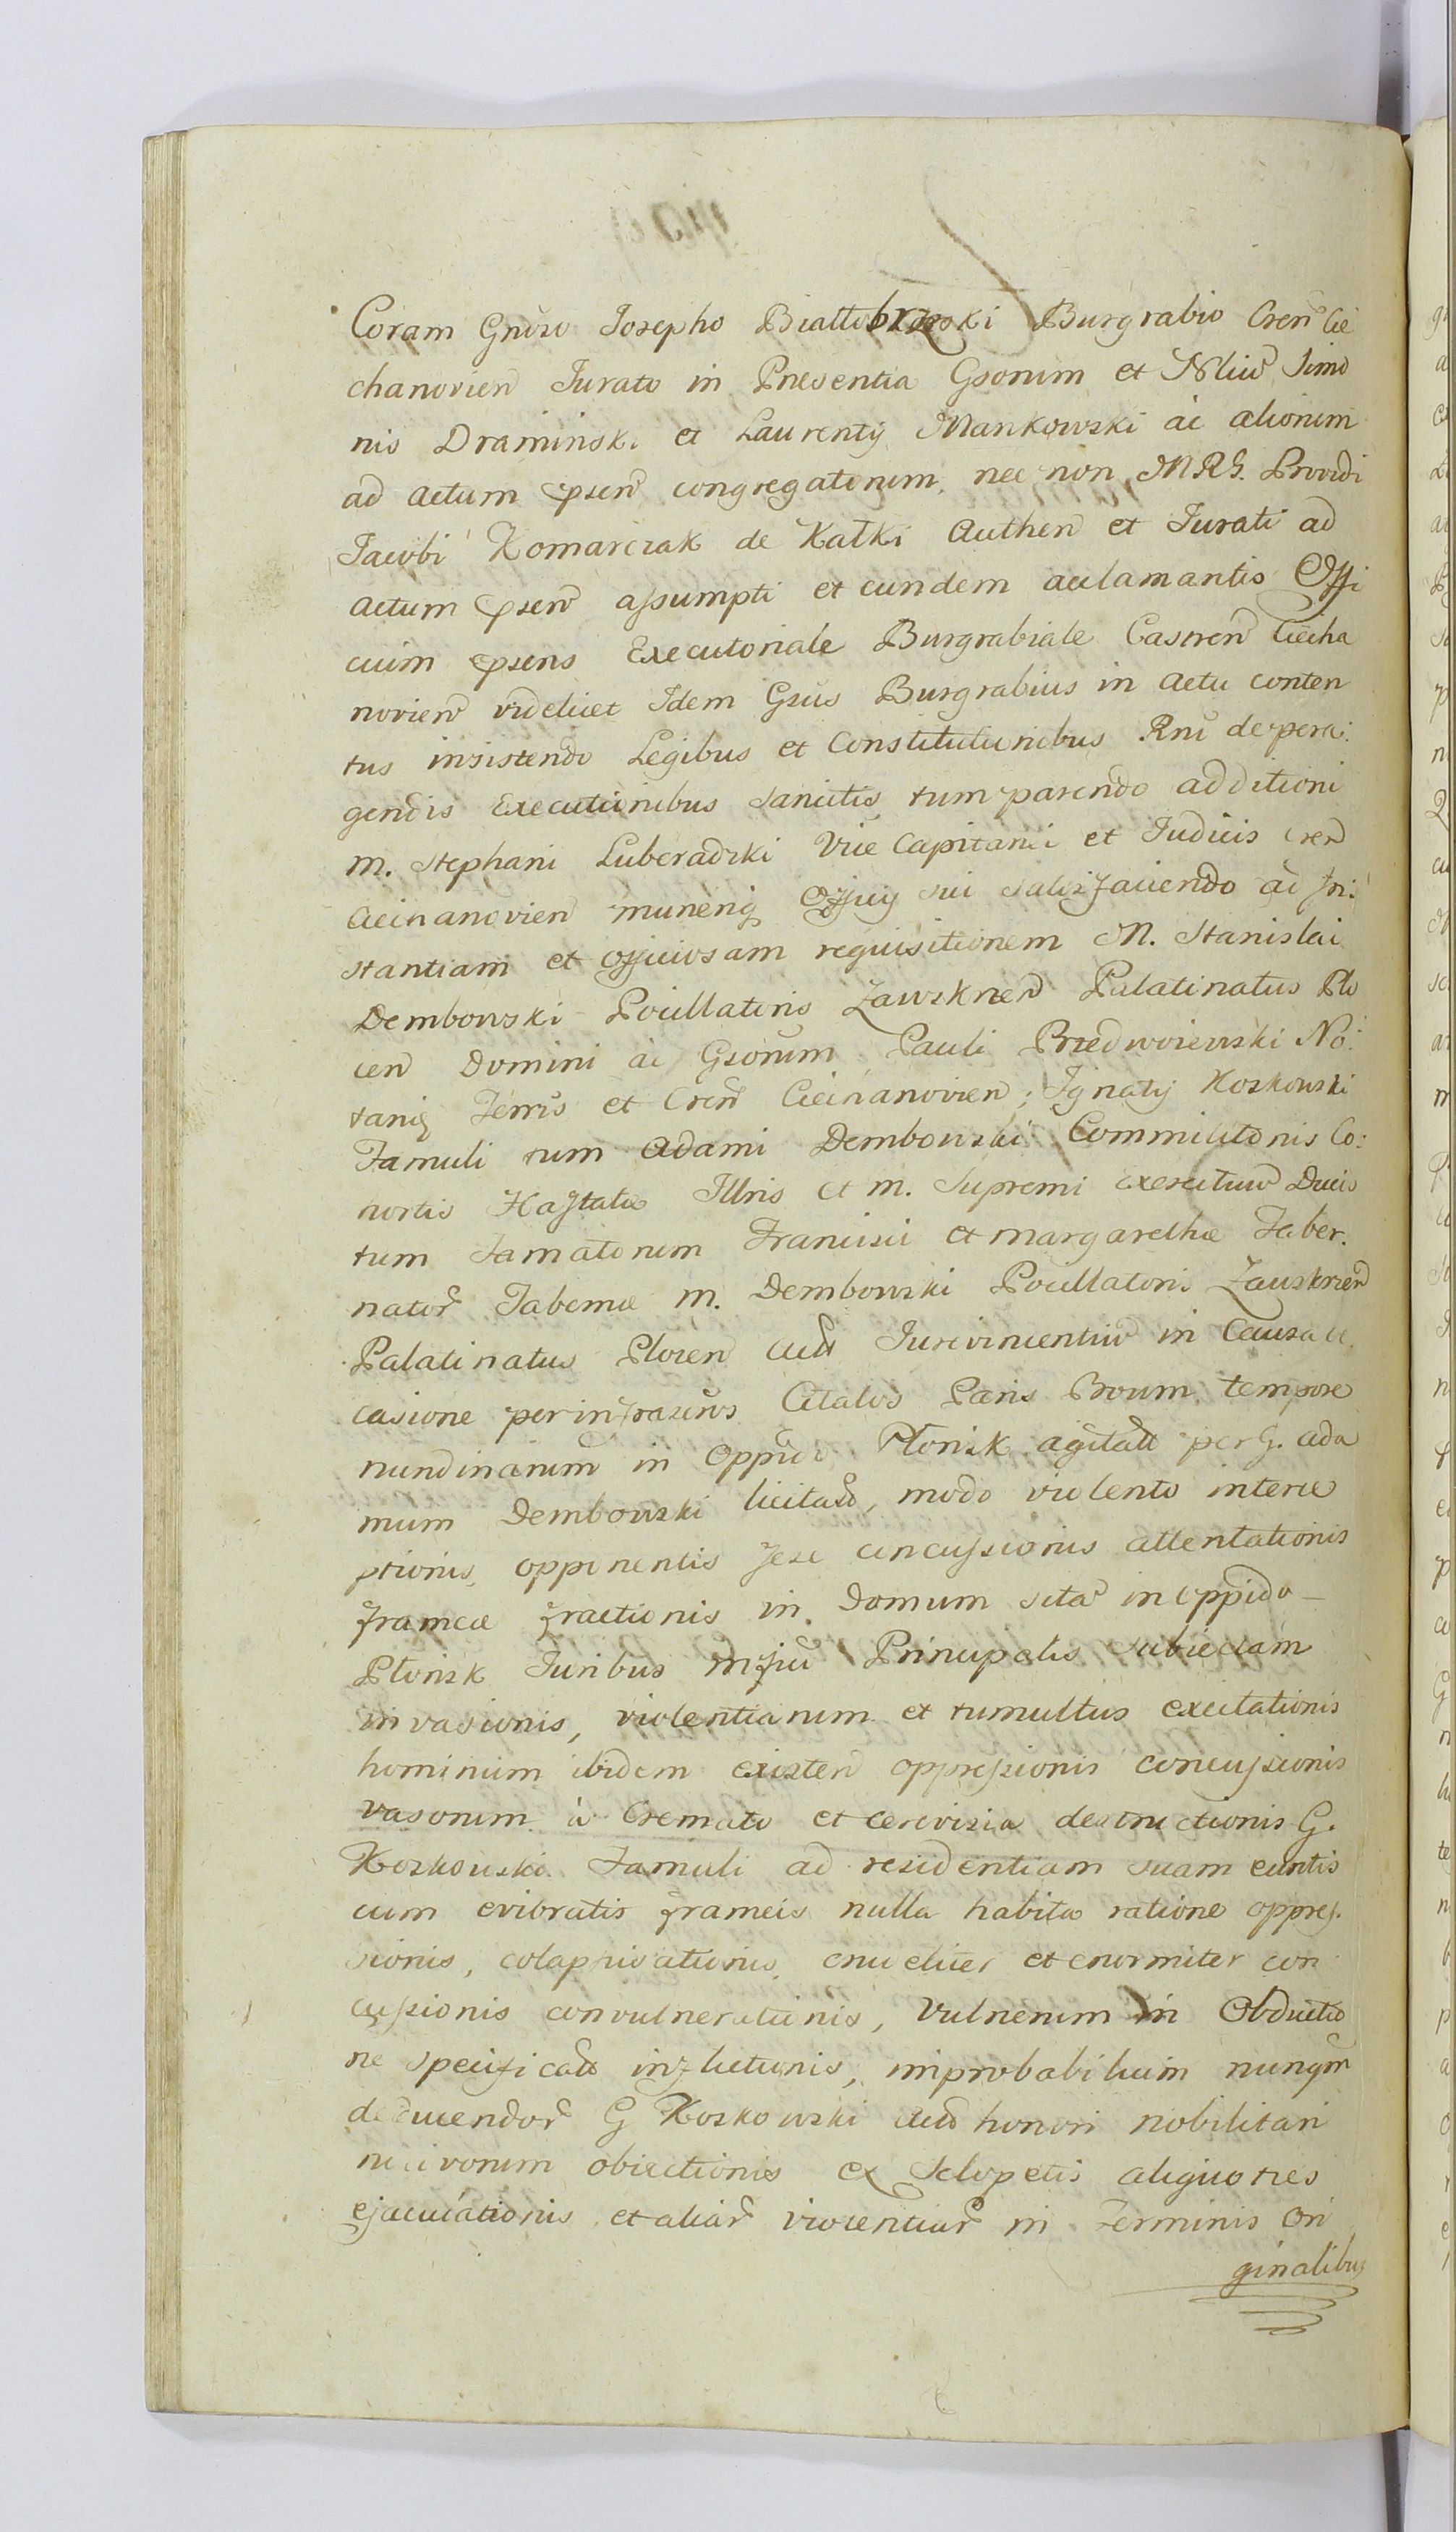 Coram Gnoso Josepho Białłobrzeski Burgrabio Cren Cie
chanovien Jurato in Presentia Gsorum et Nliu Simo
nis Draminski et Laurentij Mankowski ac aliorum
ad actum psen congregatorum, nec non MRG. Providi
Jacobi Komarczak de Kałki Authen et Jurati ad
actum psen assumpti et eundem acclamantis Offi
cium psens Executoriale Burgrabiale Castren Ciecha
novien videlicet Idem Gsus Burgrabius in actu conten
tus insistendo Legibus et Constitutionibus Rni de pera:
gendis Executionibus sancitis, tum parendo additioni
M. Stephani Luberadzki Vice Capitanei et Judicis Cren
Ciechanovien muneriq Officij sui satisfaciendo ad In:
stantiam et officiosam requisitionem M. Stanislai
Dembowski Pocillatoris Zawsknen Palatinatus Plo
cen Domini ac Gsorum Pauli Przedwoiewski No:
tarij Terris et Cren Ciechanovien; Ignatij Koskowski
Famuli tum Adami Dembowski Commilitonis Co:
hortis Hastatæ Illris et M. Supremi Exercituu Ducis
tum Famatorum Francisci et Margarethæ Taber.
nator Tabernæ M. Dembowski Pocillatoris Zauskrzen
Palatinatus Plocen Jurevincentiu in Causa oc
casione per infrascros Citatos Paris Boum tempore
nundinarum in Oppido Płonsk agitatt per G. Ada
mum Dembowski licitato, modo violento interce
ptionis, opponentis sese concussionis attentationis
frameæ fractionis in Domum sita in oppido
Płonsk Juribus Principalis subiectam
invasionis, violentiarum et tumultus excitationis
hominum ibidem existen oppressionis concussionis
vasorum à Cremato et cerevisia destructionis G.
Koskowski Famuli ad residentiam suam euntis
cum evibratis frameis nulla habita ratione oppres.
sionis, colaphisationis, crudeliter et enormiter con
cussionis convulnerationis, Vulnerum in Obductio
ne specificatt inflictionis, improbabilium nunqm
deducendor G Koskowski honori nobilitari
nocivorum obiectionis ex Sclopetis aliquoties
ejaculationis et aliar violentiar in Terminis Ori
ginalibus